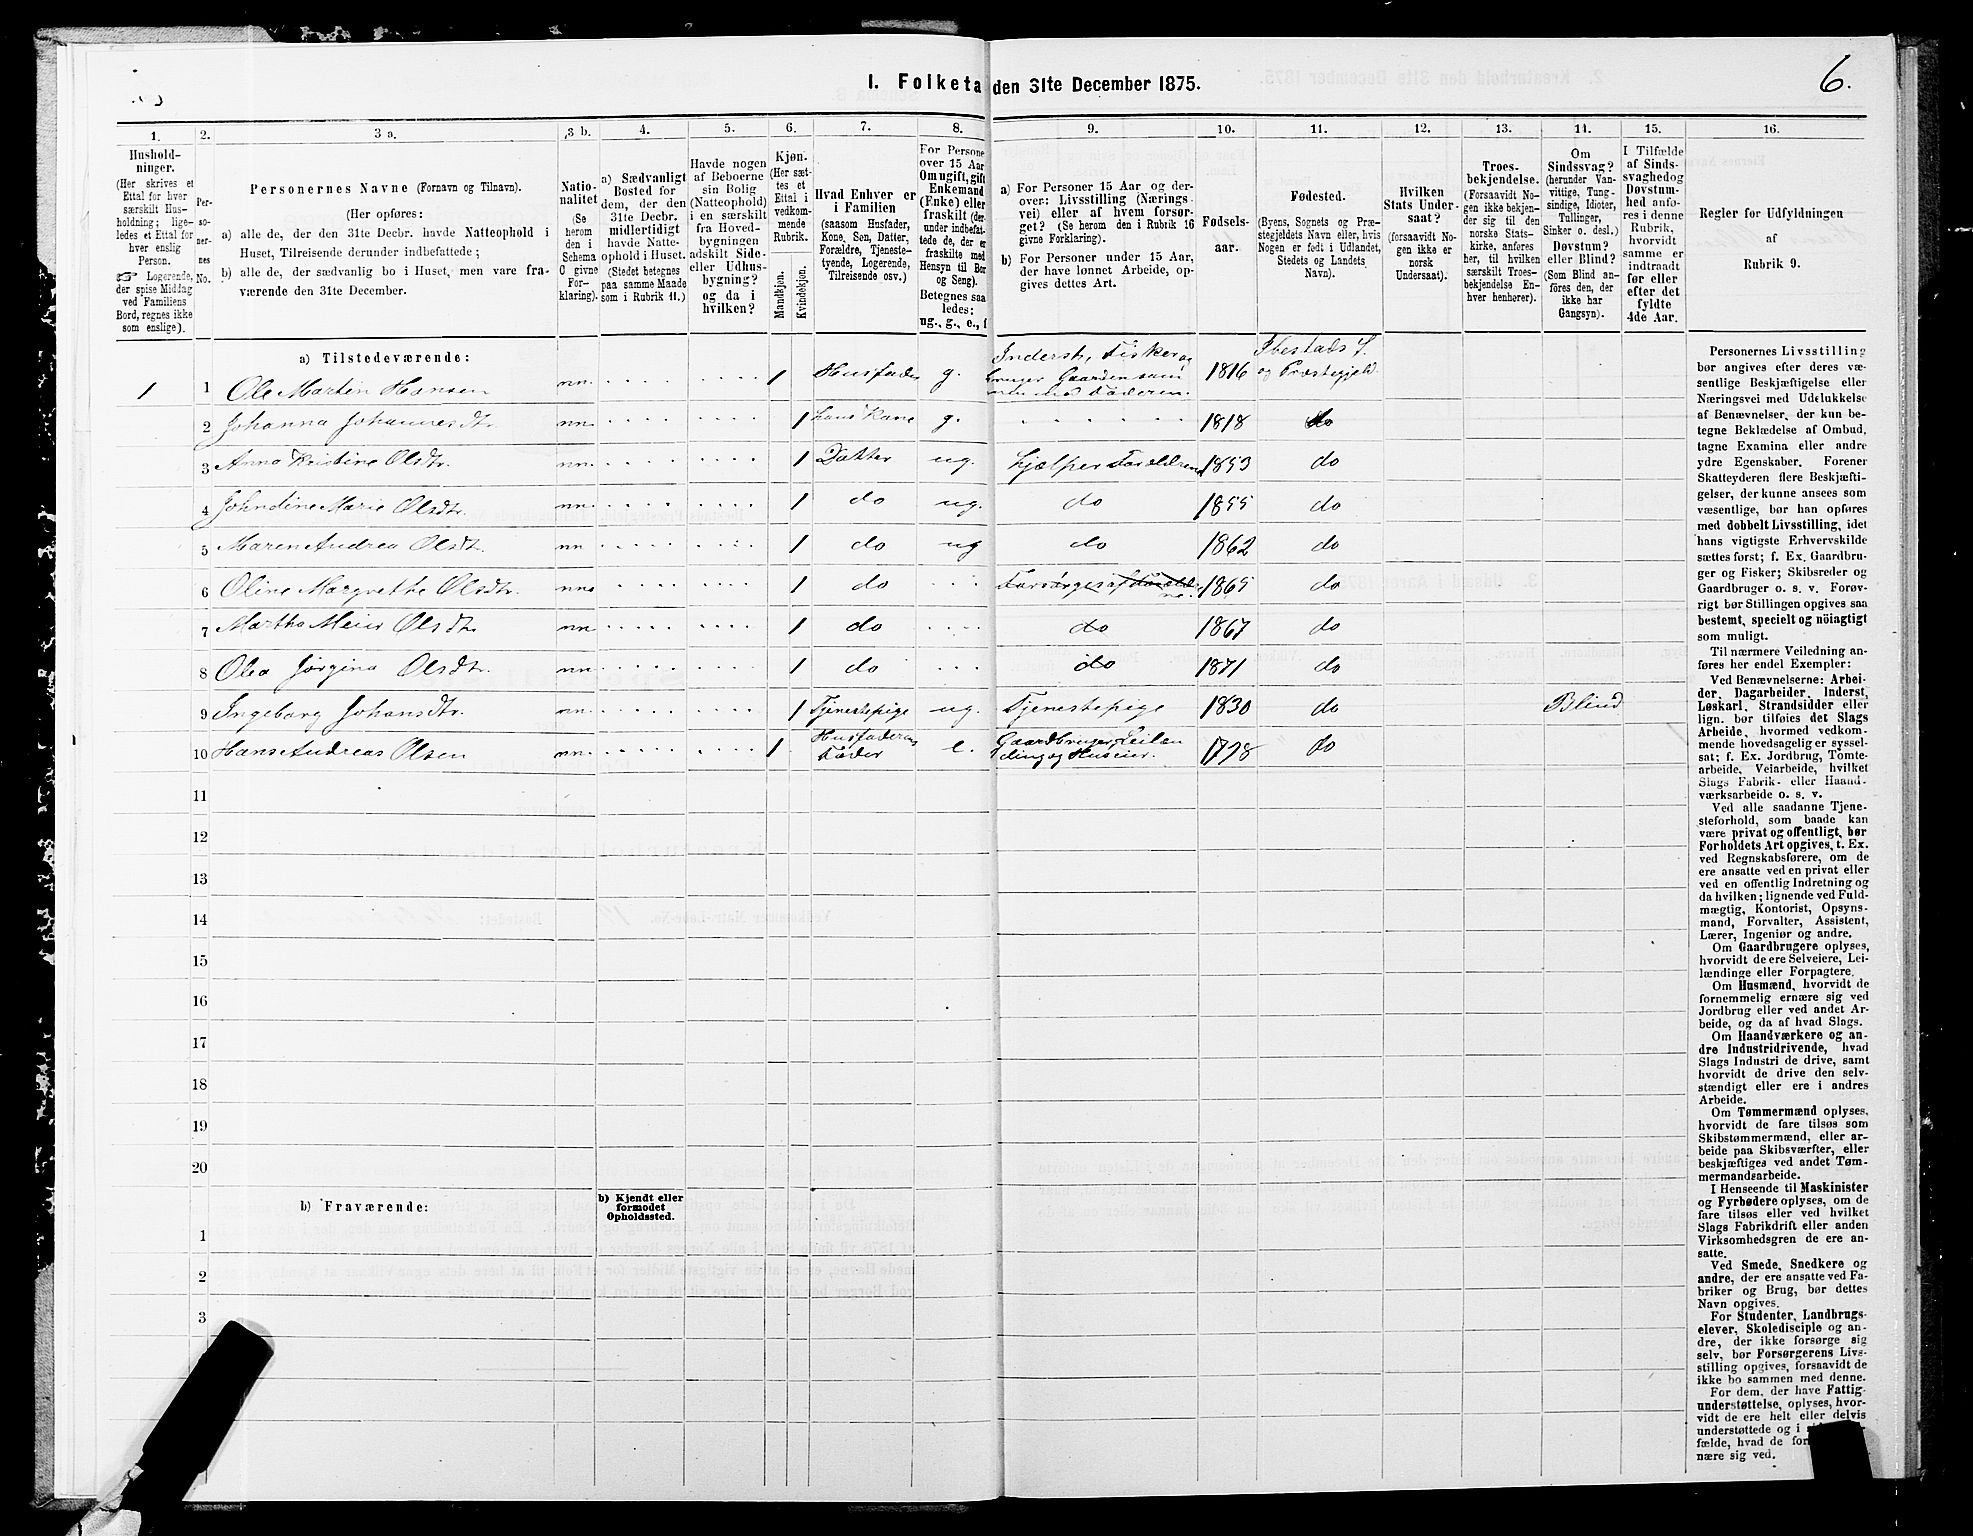 I. Folketa den 31te December 1875.
6.
1.
2.
3 a.
3 b.
4.
5.
6.
7.
8.
9.
10.
11.
12.
13.
14.
15.
16.
Hushold-
ninger.
(Her skrives et
Ettal for hver
særskilt Hus-
holdning; lige-
ledes et Ettal for
hver enslig
Person.
☞ Logerende,
der spise Middag
ved Familiens
Bord, regnes ikke
som enslige).
Per-
so-
ner-
nes
No.
Personernes Navne (Fornavn og Tilnavn).
(Her opføres:
a) alle de, der den 31te Decbr. havde Natteophold i
Huset, Tilreisende derunder indbefattede;
b) alle de, der sædvanlig bo i Huset, men vare fra-
værende den 31te December.
Natio-
nalitet
(Se
herom
den i
Schema
O givne
For-
klaring).
a) Sædvanligt
Bosted for
dem, der den
31te Decbr.
midlertidigt
havde Natte-
ophold i Huset.
(Stedet betegnes
paa samme Maade
som i Rubrik 11.)
Havde nogen
af Beboerne
sin Bolig
(Natteophold)
i en særskilt
fra Hoved-
bygningen
adskilt Side-
eller Udhus-
bygning?
og da i
hvilken?
Kjøn.
(Her sæt-
tes et
Ettal i
vedkom-
mende
Rubrik.
Mandkjøn.
Kvindekjøn.
Hvad Enhver er
i Familien
(saasom Husfader,
Kone, Søn, Datter,
Forældre, Tjeneste-
tyende, Logerende,
Tilreisende osv.)
For Persone
over 15 Aar
Om ugift, gift
Enkemand
(Enke) eller
fraskilt (der-
under indbefat-
tede de, der er
fraskilte med
Hensyn til Bor
og Seng).
Betegnes saa
ledes:
ug., g., e., f
a) For Personer 15 Aar og der-
over: Livsstilling (Nærings-
vei) eller af hvem forsør-
get? (Se herom den i Rubrik 16
givne Forklaring).
b) For Personer under 15 Aar,
der have lønnet Arbeide, op-
gives dettes Art.
Fødsels-
aar.
Fødested.
(Byens, Sognets og Præ-
stegjeldets Navn eller, hvis
Nogen er født i Udlandet,
Stedets og Landets
Navn).
Hvilken
Stats Under-
saat?
(forsaavidt No-
gen ikke er
norsk
Undersaat).
Troes-
bekjendelse.
(Forsaavidt No-
gen ikke bekjen-
der sig til den
norske Stats-
kirke, anføres
her, til hvilken
særskilt Troes-
bekjendelse En-
hver henhører).
Om
Sindssvag?
(herunder Van-
vittige, Tung-
sindige, Idioter,
Tullinger,
Sinker o. desl.)
Døvstum?
eller Blind?
(Som Blind an-
føres den, der
ikke har
Gangsyn).
I Tilfælde
af Sinds-
svaghed og
Døvstum-
hed anfø-
res i denne
Rubrik,
hvorvidt
samme er
indtraadt
før eller
efter det
fyldte
4de Aar.
Regler for Udfyldningen
af
Rubrik 9.
a) Tilstedeværende:
1 1 Ole Martin Hansen nn. 1 Husfader g. Inderst, Fisker og bruger Gaarden sam men med Faderen. 1816 Ibestads S. og Præstegjeld
2 Johanna Johannesdtr. nn. 1 hans Kone g. 1818 do
3 Anna Kristine Olsdtr. nn. 1 Datter ug. hjælper Forældrene 1853 do
4 Johndine Marie Olsdtr. nn. 1 do ug. do 1855 do
5 Maren Andrea Olsdtr. nn 1 do ug do 1862 do
6 Oline Margrethe Olsdtr. nn 1 do Forsørges af Foræld- ne. 1865 do
7 Martha Olsdtr. nn. 1 do do 1867 do
8 Olea Jørgina Olsdtr. nn. 1 do do 1871 do
9 Ingeborg Johansdtr. nn. 1 Tjenestepige ug. Tjenestepige 1830 do Blind
10 Hans Andreas Olsen nn. 1 Husfaderens Fader e. Gaardbruger, Leilæn ding og Huseier. 1798 do
11
12
13
14
15
16
17
18
19
20
b) Fraværende:
b) Kjendt eller
formodet
Opholdssted.
1
2
3
Personernes Livsstilling
bør angives efter deres væ-
sentlige Beskjæftigelse eller
Næringsvei med Udelukkelse
af Benævnelser, der kun be-
tegne Beklædelse af Ombud,
tagne Examina eller andre
ydre Egenskaber. Forener
Skatteyderen flere Beskjæfti-
gelser, der kunne ansees som
væsentlige, bør han opføres
med dobbelt Livsstilling, idet
hans vigtigste Erhvervskilde
sættes først; f. Ex. Gaardbru-
ger og Fisker; Skibsreder og
Gaardbruger o. s. v. Forøv-
rigt bør Stillingen opgives saa
bestemt, specielt og nöiagtigt
som muligt.
Til nærmere Veiledning an-
føres her endel Exempler:
Ved Benævnelserne: Arbei-
der, Dagarbeider, Inderst,
Løskarl, Strandsidder eller
lign. bør tilføies det Slags
Arbeide, hvormed vedkom-
mende hovedsagelig er syssel-
sat; f. Ex. Jordbrug, Tomte-
arbeide, Veiarbeide, hvilket
Slags Fabrik- eller Haand-
værksarbeide o. s. v.
Ved alle saadanne Tjene-
steforhold, som baade kan
være privat og offentligt, bør
Forholdets Art opgives, t. Ex.
ved Regnskabsførere, om de
ere ansatte ved en privat eller
ved en offentlig Indretning og
da hvilken; lignende ved Fuld-
mægtig, Kontorist, Opsyns-
mand, Forvalter, Assistent,
Lærer, Ingeniør og andre.
Om Gaardbrugere oplyses,
hvorvidt de ere Selveiere, Lei-
lændinge eller Forpagtere.
Om Husmænd, hvorvidt de
fornemmelig ernære sig ved
Jordbrug eller ved andet Ar-
beide, og da af hvad Slags.
Om Haandværkere og an-
dre Industridrivende, hvad
Slags Industri de drive, samt
hvorvidt de drive den selv-
stændigt eller ere i andres
Arbeide.
Om Tømmermænd oplyses,
hvorvidt de fare tilsøs som
Skibstømmermænd, eller ar-
beide paa Skibsværfter, eller
beskjæftiges ved andet Tøm-
mermandsarbeide.
I Henseende til Maskinister
og Fyrbødere oplyses, om de
fare tilsøs eller ved hvilket
Slags Fabrikdrift eller anden
Virksomhedsgren de ere an-
satte.
Ved Smede, Snedkere og
andre, der ere ansatte ved Fa-
briker og Brug, bør dettes
Navn opgives.
For Studenter, Landbrugs-
elever, Skoledisciple og an-
dre, der ikke forsørge sig
selv, bør Forsørgerens Livs-
stilling opgives, forsaavidt de
ikke bo sammen med denne.
For dem, der have Fattig-
understøttelse, oplyses, hvor-
vidt de ere helt eller delvis
understøttede og i
fælde, hvad de for
nære sig ved.